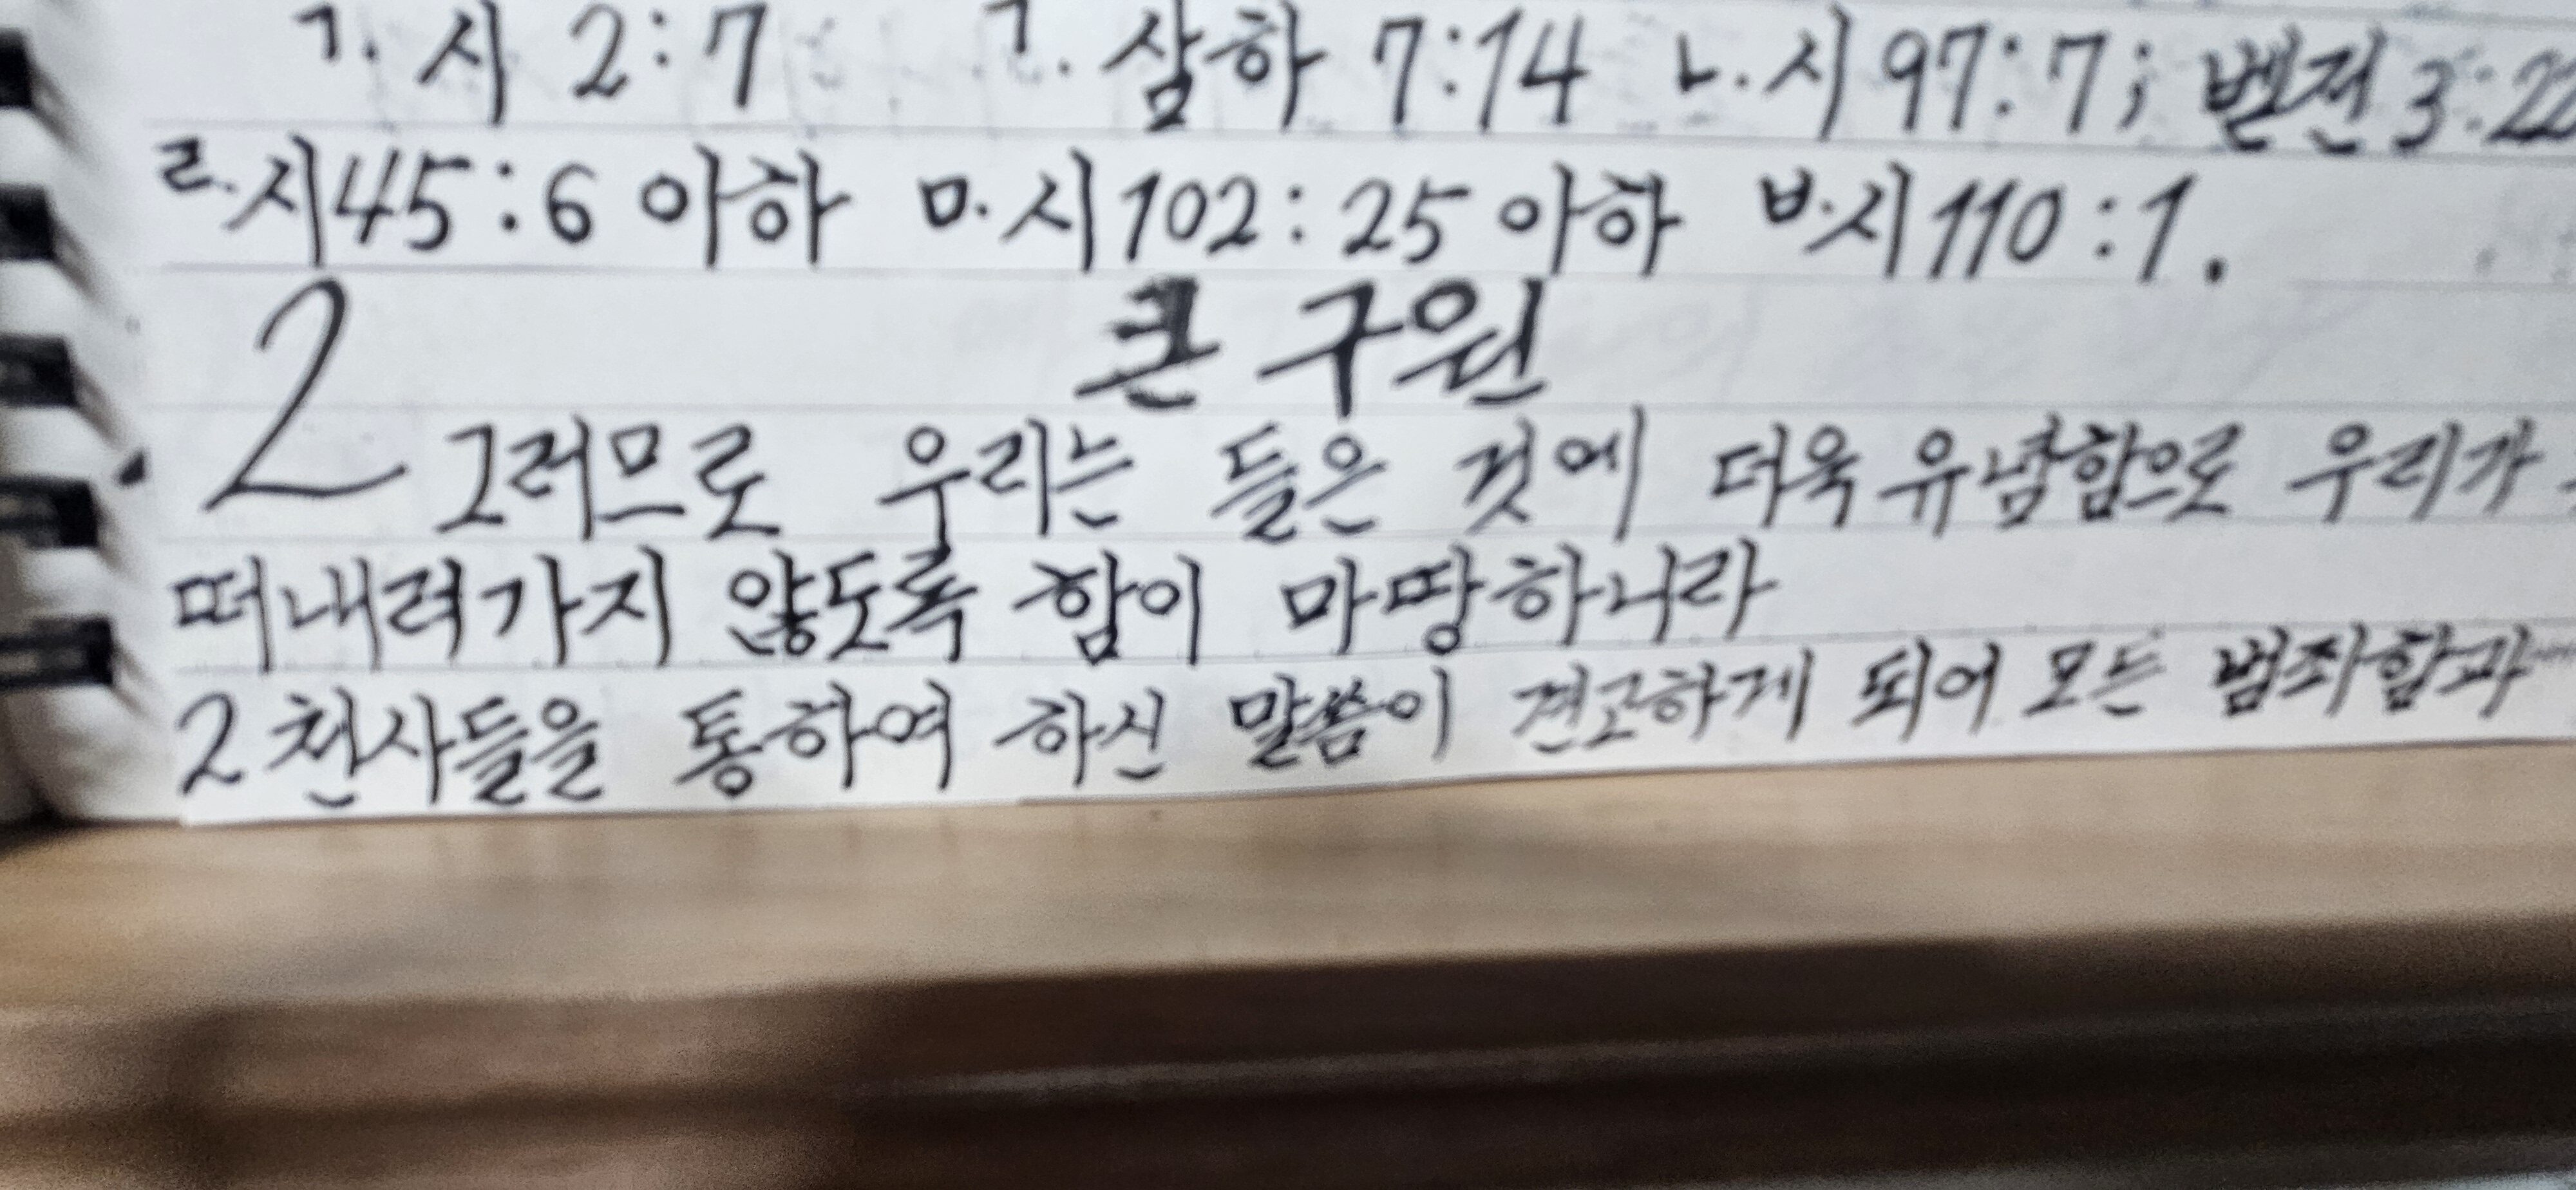 ㄱ. 시 2:7 ㄱ. 삼하 7:14 ㄴ. 시 97:7; 벧전 3:22
ㄹ. 시 45:6 아하 ㅁ. 시 102:25 아하 ㅂ. 시 110:1.
큰 구원
2 그러므로 우리는 들은 것에 더욱 유념함으로 우리가
떠내려가지 않도록 함이 마땅하니라
2 천사들을 통하여 하신 말씀이 견고하게 되어 모든 범죄함과